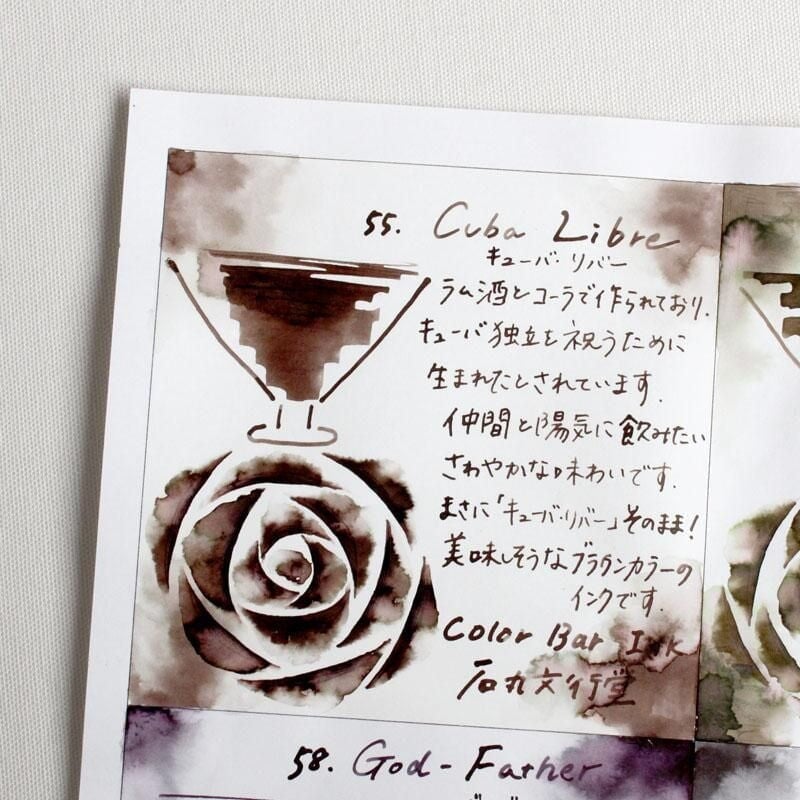 55. Cuba Libre
キューバ・リバー
ラム酒とコーラで作られており、
キューバ独立を祝うために
生まれたとされています。
仲間と陽気に飲みたい
さわやかな味わいです。
まさに「キューバ・リバー」そのまま!
美味しそうなブラウンカラーの
インクです。
Color Bar Ink
石丸文行堂
58. God-Father